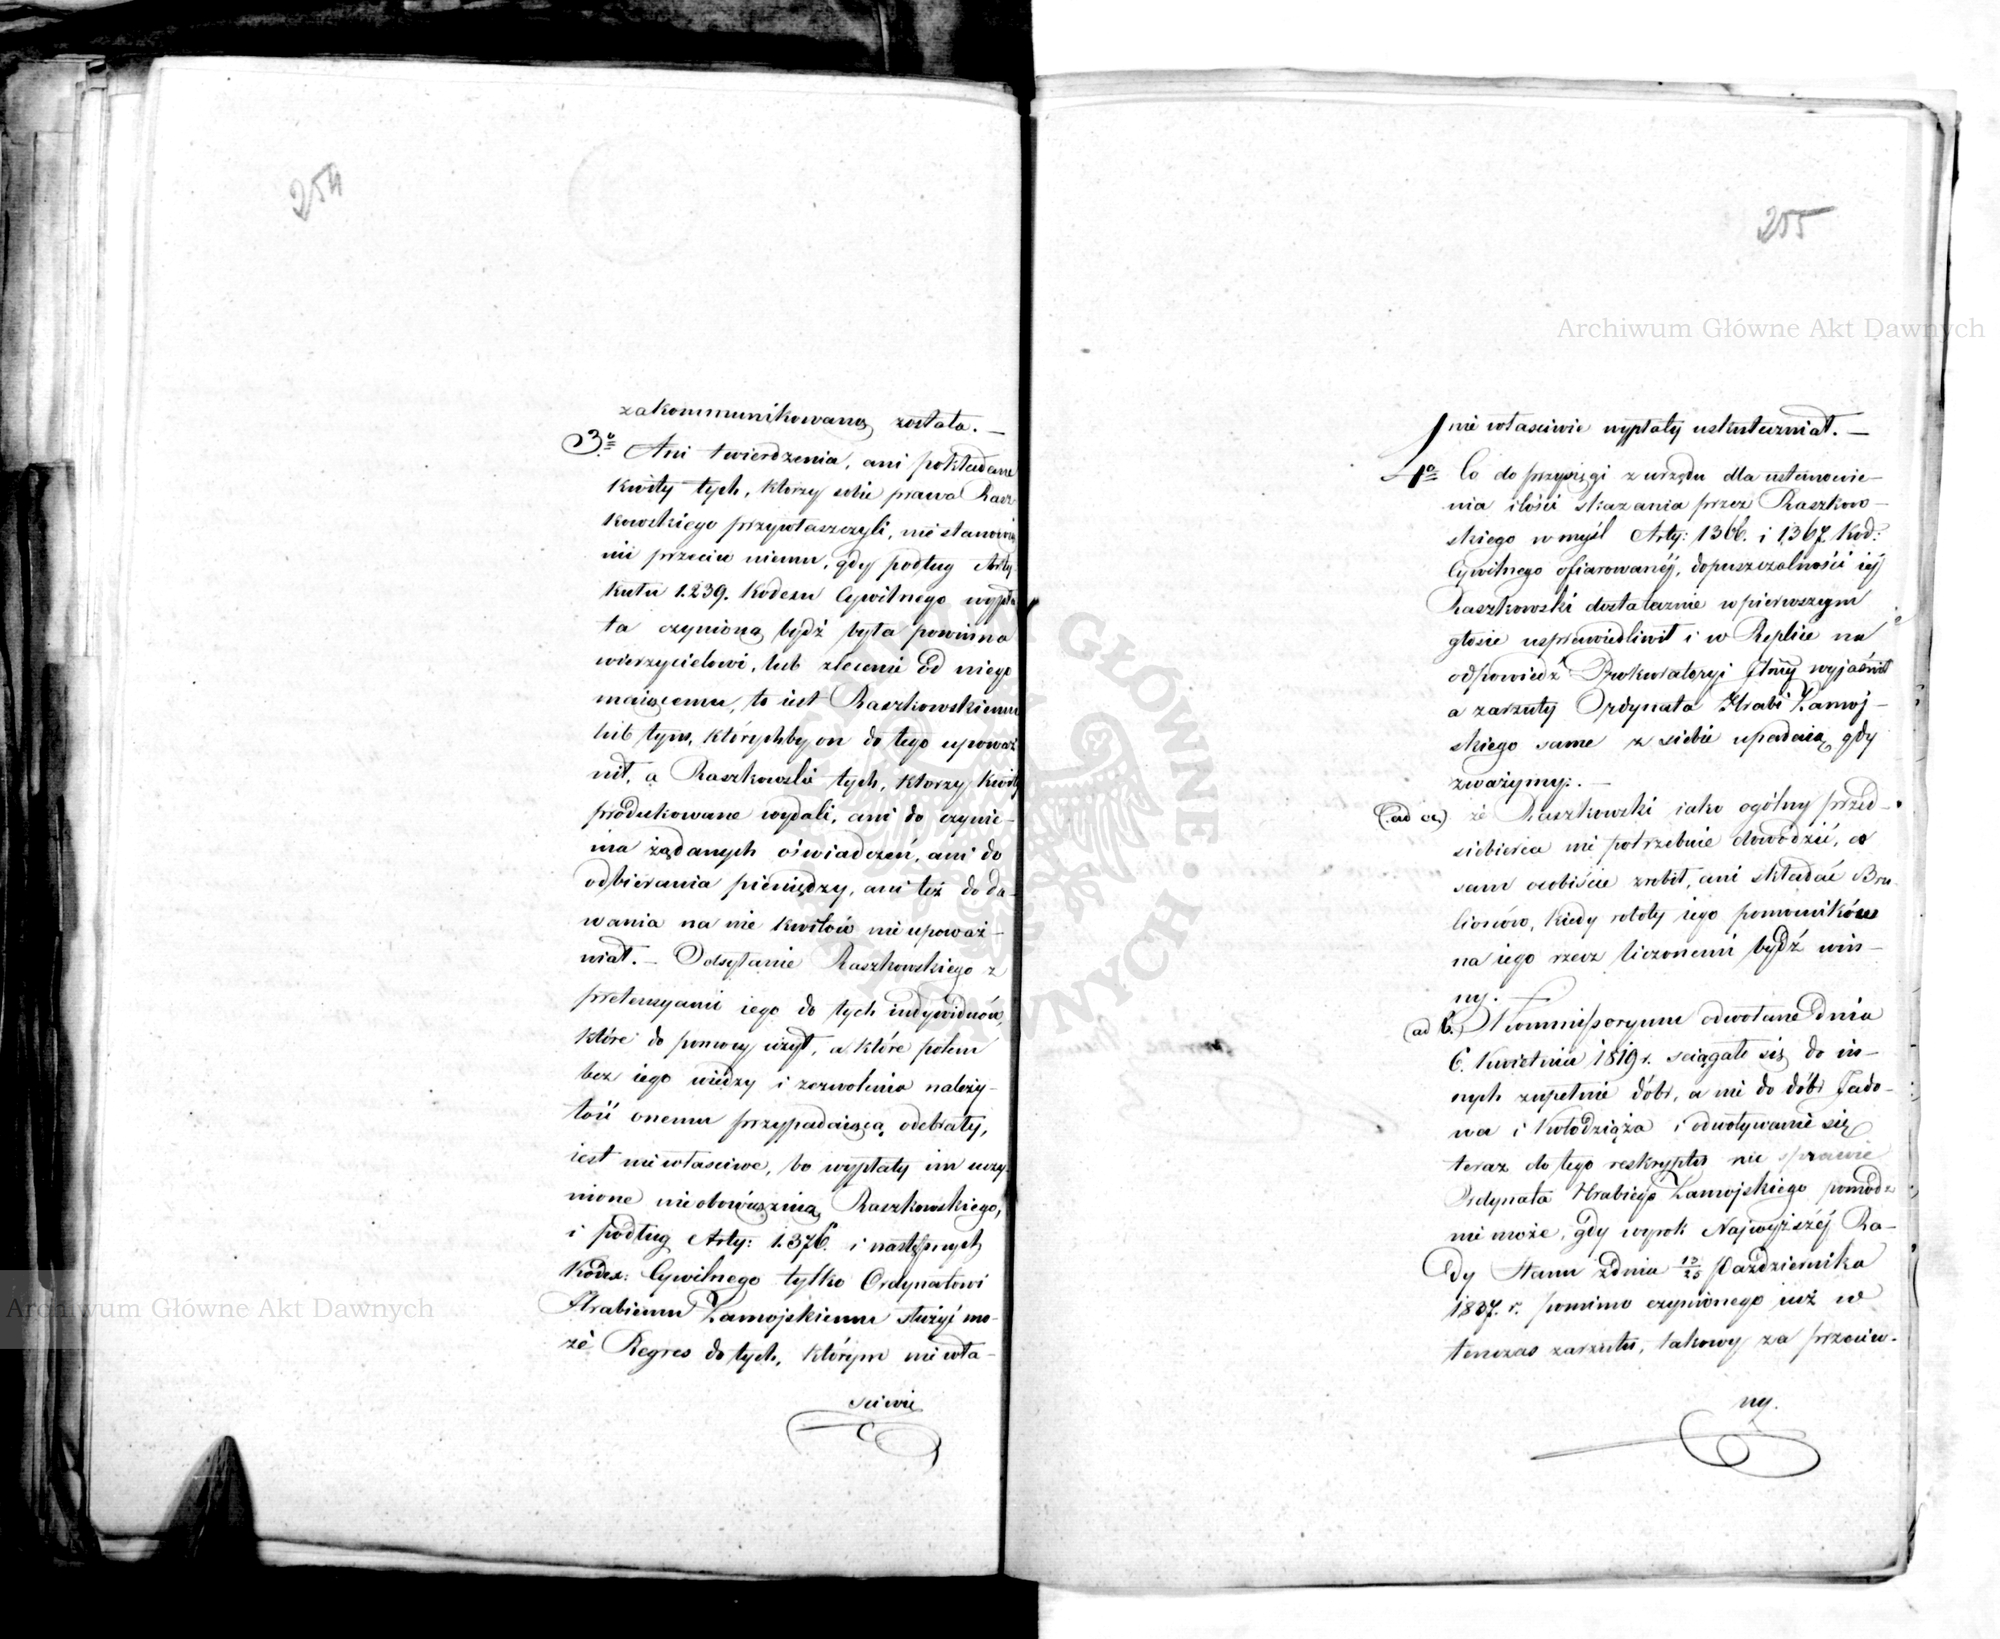 254
zakommunikowaną została. —
3º Ani twierdzenia, ani pokładane
kwity tych, którzy sobie prawa Rasz
kowskiego przywłaszczyli, nie stanowią
nic przeciw niemu, gdy podług Arty-
kułu 1.239. Kodexu Cywilnego wypła
ta czynioną bydź była powinna
wierzycielowi, lub zlecenie od niego
maiącemu, to iest Raszkowskiemu
lub tym, którychby on do tego upoważ
nił, a Raszkowski tych, którzy kwity
produkowane wydali, ani do czynie-
nia żądanych oświadczeń, ani do
odbierania pieniędzy, ani też do da-
wania na nie kwitów nie upoważ-
niał. — Odsyłanie Raszkowskiego z
pretensyami iego do tych indywiduów,
które do pomocy użył, a które potem
bez iego wiedzy i zezwolenia należy-
tość onemu przypadaiącą odebrały,
iest niewłaściwe, bo wypłaty im uczy-
nione nieobowiązuią Raszkowskiego,
i podług Arty: 1.376. i następnych
Kodex: Cywilnego tylko Ordynatowi
Hrabiemu Zamojskiemu służyć mo-
że Regres do tych, którym niewła-
ściwie
255
niewłaściwie wypłaty uskuteczniał. —
4º Co do przysięgi z urzędu dla ustanowie-
nia ilości skazania przez Raszkow-
skiego w myśl Arty: 1366. i 1367. Kod:
Cywilnego ofiarowanéj, dopuszczalności iéj
Raszkowski dostatecznie w pierwszym
głosie usprawiedliwił i w Replice na
odpowiedź Prokuratoryi Jlnéy wyjaśnił
a zarzuty Ordynata Hrabi Zamoj-
skiego same z siebie upadaią, gdy
zważymy: —
(ad a) że Raszkowski iako ogólny przed-
siebierca nie potrzebuie dowodzić, co
sam osobiście zrobił, ani składać Bru-
lionów, kiedy roboty iego pomocników
na iego rzecz liczonemi bydź win-
ny. —
(ad b.) Kommissoryum odwołane dnia
6. Kwietnia 1819 r. sciągało się do in-
nych zupełnie dóbr, a nie do dóbr Jado-
wa i Kołodziąża i odwoływanie się
teraz do tego reskryptu nic sprawie
Ordynata Hrabiego Zamojskiego pomódz
nie może, gdy wyrok Najwyższéj Ra-
dy Stanu z dnia 13/25 Października
1837. r. pomimo czynionego już w
tenczas zarzutu, takowy za przeciw-
ny.
Archiwum Główne Akt Dawnych
Archiwum Główne Akt Dawnych